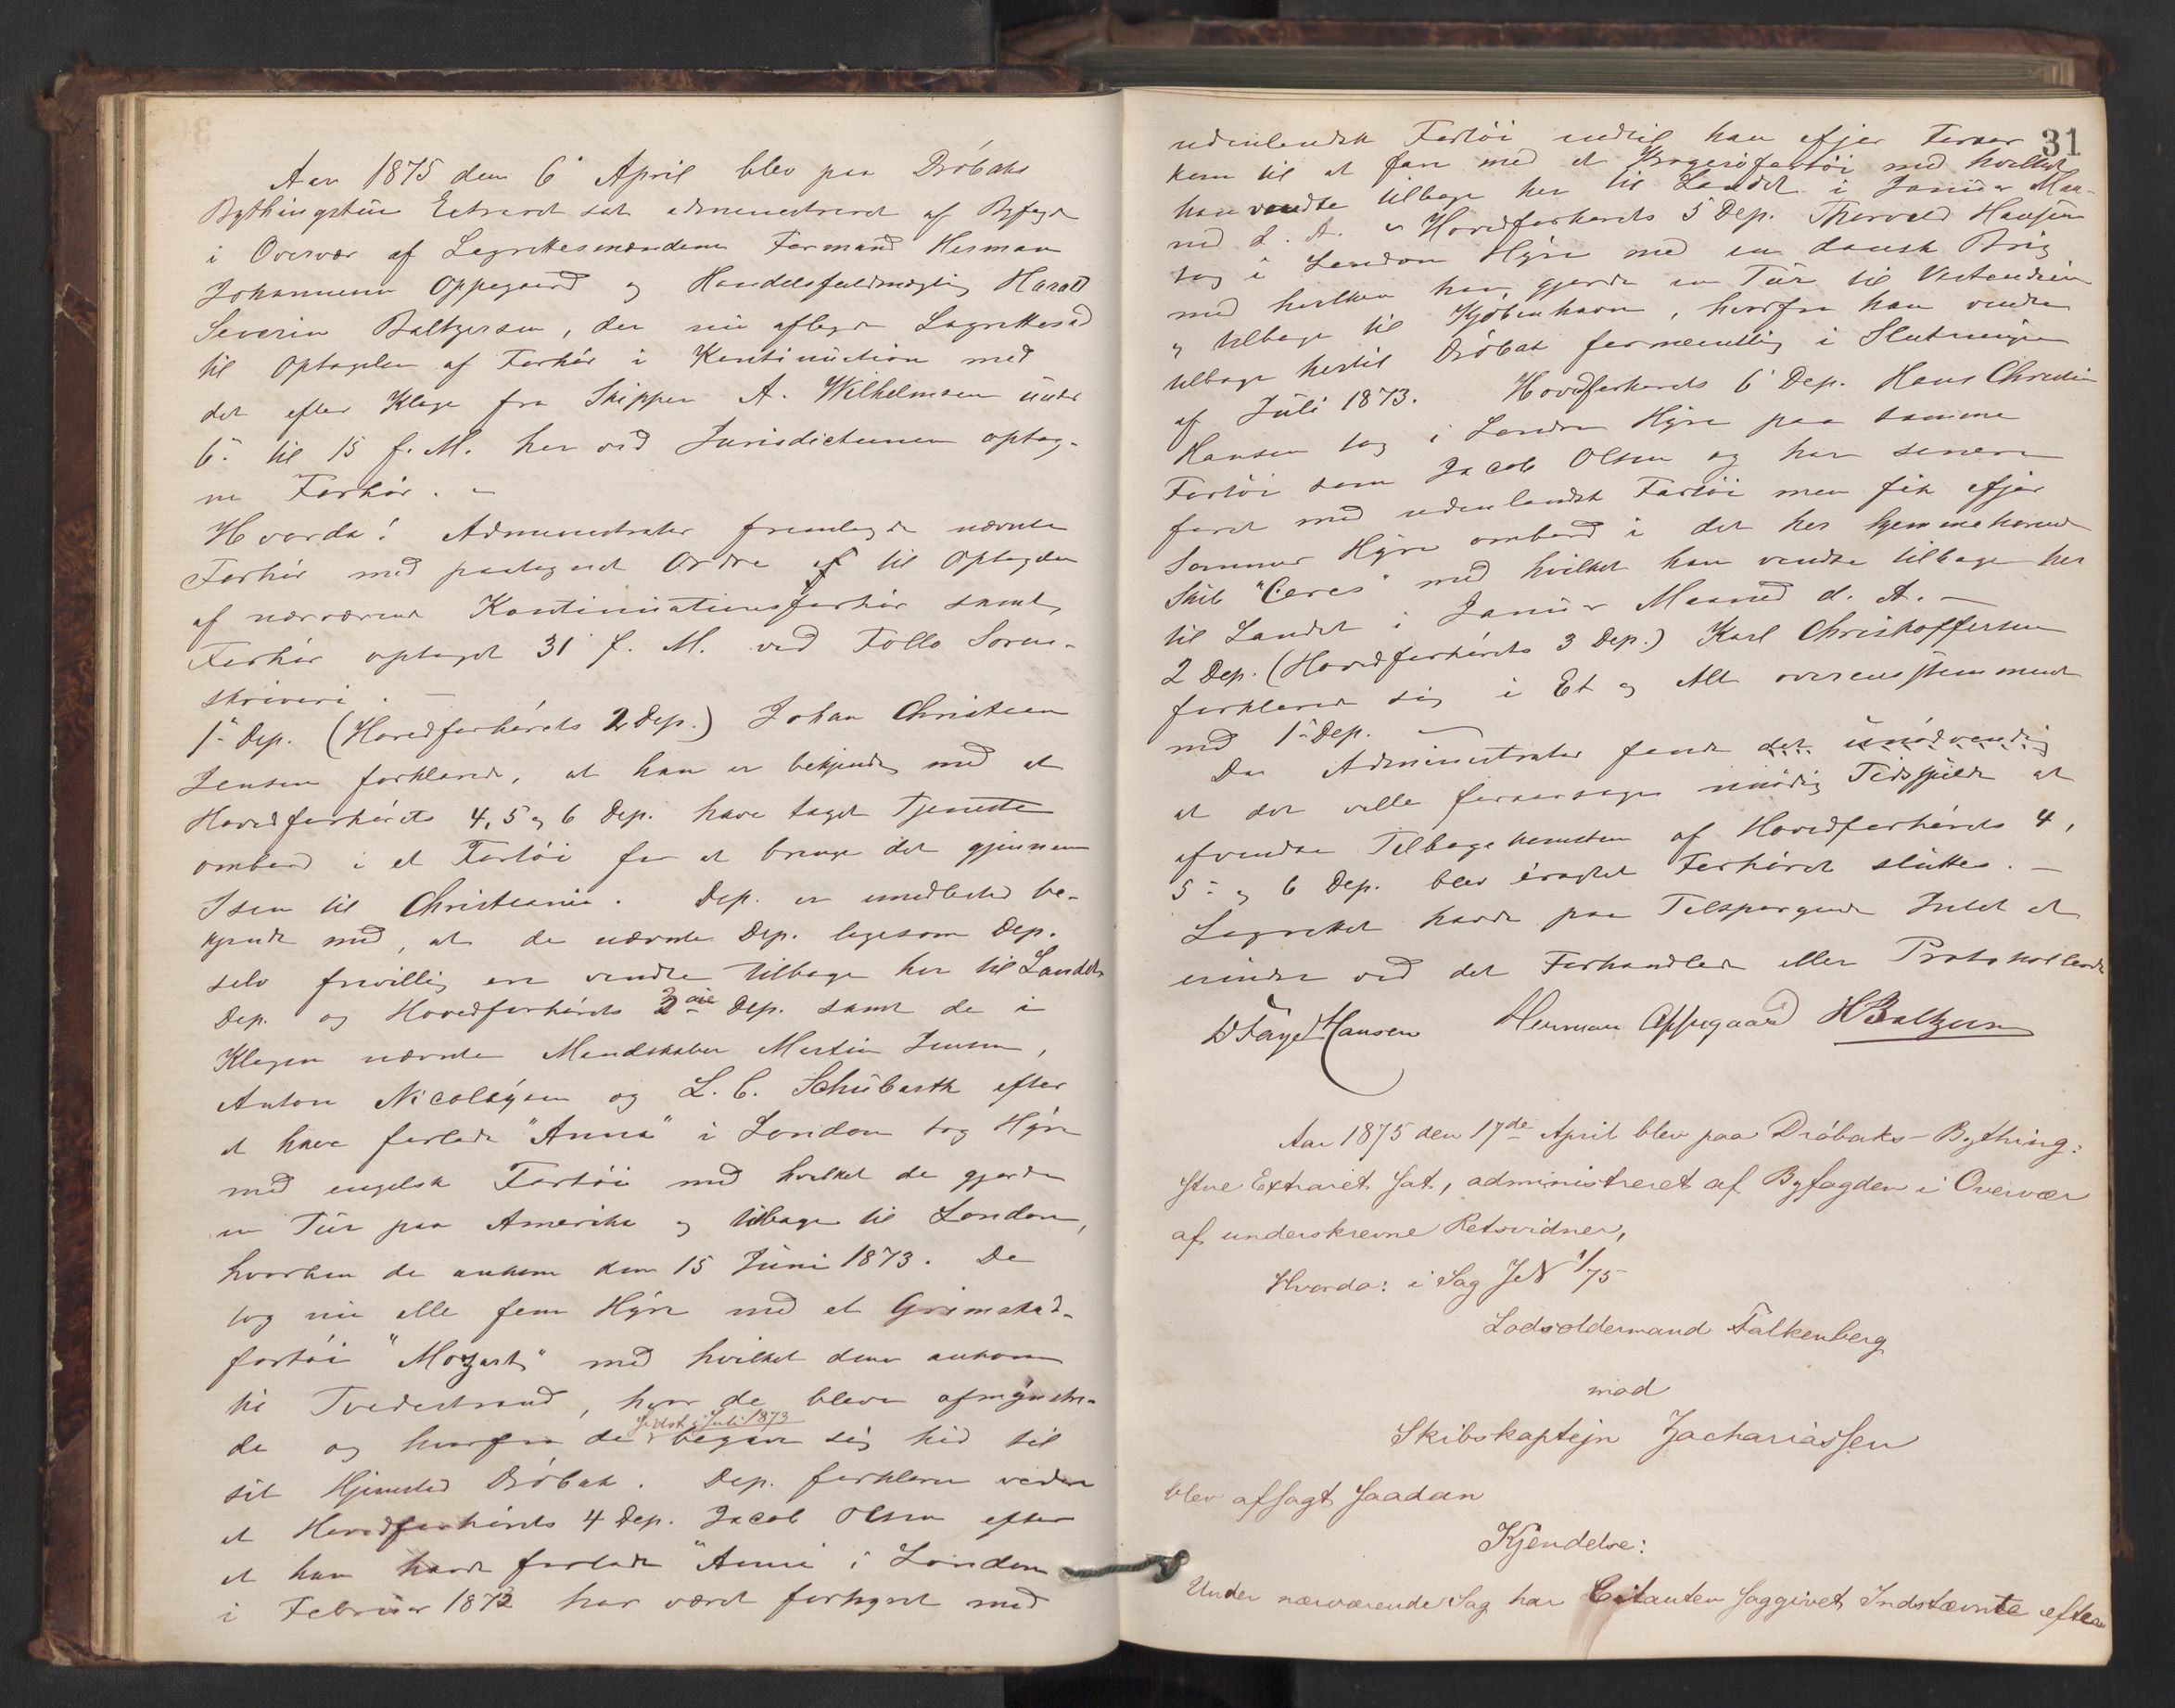 Aar 1875 den 6 April blev paa Dröbaks
Bythingstue Extraret sat administreret af Byfogden
i Overvær af Lagrettesmændene Formand Herman
Johannesen Oppegaard og Handelsfuldmægtig Harald
Severin Baltzersen, der nu aflagde Lagretteséd
til Optagelse af Forhör i Kontinuation med
det efter Klage fra Skipper A. Wilhelmsen under
6 til 15 f. M. her ved Jurisdictionen optag-
ne Forhör. –
Hvorda! Administrator fremlagde nævnte
Forhör med paategnet Ordre af til Optagelse
af nærværende Kontinuationsforhör samt
Forhör optaget 31 f. M. ved Follo Soren-
skriveri. –
1ste Dep. (Hovedforhörets 2 Dep.) Johan Christian
Jensen forklarede, at han er bekjendt med at
Hovedforhörets 4, 5 og 6 Dep. have taget Tjeneste
ombord i et Fartöi for at bringe det gjennem
Isen til Christiania. Dep. er imidlertid be-
kjendt med, at de nævnte Dep. ligesom Dep.
selv frivillig ere vendte tilbage her til Landet.
Dep. og Hovedforhörets 3die Dep. samt de i
Klagen nævnte Mandskaber Martin Jensen,
Anton Nicolaysen og L. C. Schübarth efter
at have forladt "Anna" i London tog Hyre
med engelsk Fartöi med hvilket de gjorde
en Tur paa Amerika og tilbage til London,
hvorhen de ankom den 15 Juni 1873. De
tog nu alle fem Hyre med et Grimstad-
fartöi "Mozart" med hvilket denne ankom
til Tvedestrand, hvor de bleve afmynstre-
de og hvorfra de begave sig hid til
sidst i Juli 1873
sit Hjemsted Dröbak. Dep. forklarer videre
at Hovedforhörets 4 Dep. Jacob Olsen efter
at han havde forladt "Anna" i London
i Februar 1873 har været forhyret med
31
udenlandsk Fartöi indtil han ifjor Foraar
kom til at fare med et Kragerøfartöi med hvilket
han vendte tilbage her til Landet i Januar Maa-
ned d. A. Hovedforhörets 5 Dep. Thorvald Hansen
tog i London Hyre med en dansk Brig
med hvilken han gjorde en Tur til Vestindien
og tilbage til Kjöbenhavn, hvorfra han vendte
tilbage hertil Dröbak formentlig i Slutningen
af Juli 1873. Hovedforhörets 6 Dep. Hans Christian
Hansen tog i London Hyre paa samme
Fartöi som Jacob Olsen og har senere
faret med udenlandsk Fartöi men fik ifjor
Sommer Hyre ombord i det her hjemmehörende
Skib "Ceres" med hvilket han vendte tilbage her
til Landet i Januar Maaned d. A. –
2 Dep. (Hovedforhörets 3 Dep.) Karl Christoffersen
forklarede sig i Et og Alt overensstemmende
med 1ste Dep. –
Da Administrator fandt det unödvendig
at det ville foraarsage unödig Tidsspilde at
afvendte Tilbagekomsten af Hovedforhörets 4,
5 og 6 Dep. blev éragtet Forhöret sluttes. –
Lagrettet havde paa Tilspørgende Intet at
erindre ved det Forhandlede eller Protokollerede
D Faye Hansen Herman Oppegaard H Baltzersen
Aar 1875 den 17de April blev paa Dröbaks-Bything-
stue Extraret sat, administreret af Byfogden i Overvær
af underskrevne Retsvidner,
Hvorda: i Sag JN 1/75
Lodsoldermand Falkenberg
mod
Skibskaptejn Zachariassen
blev afsagt saadan
Kjendelse:
Under nærværende Sag har Citanten saggivet Indstævnte efter